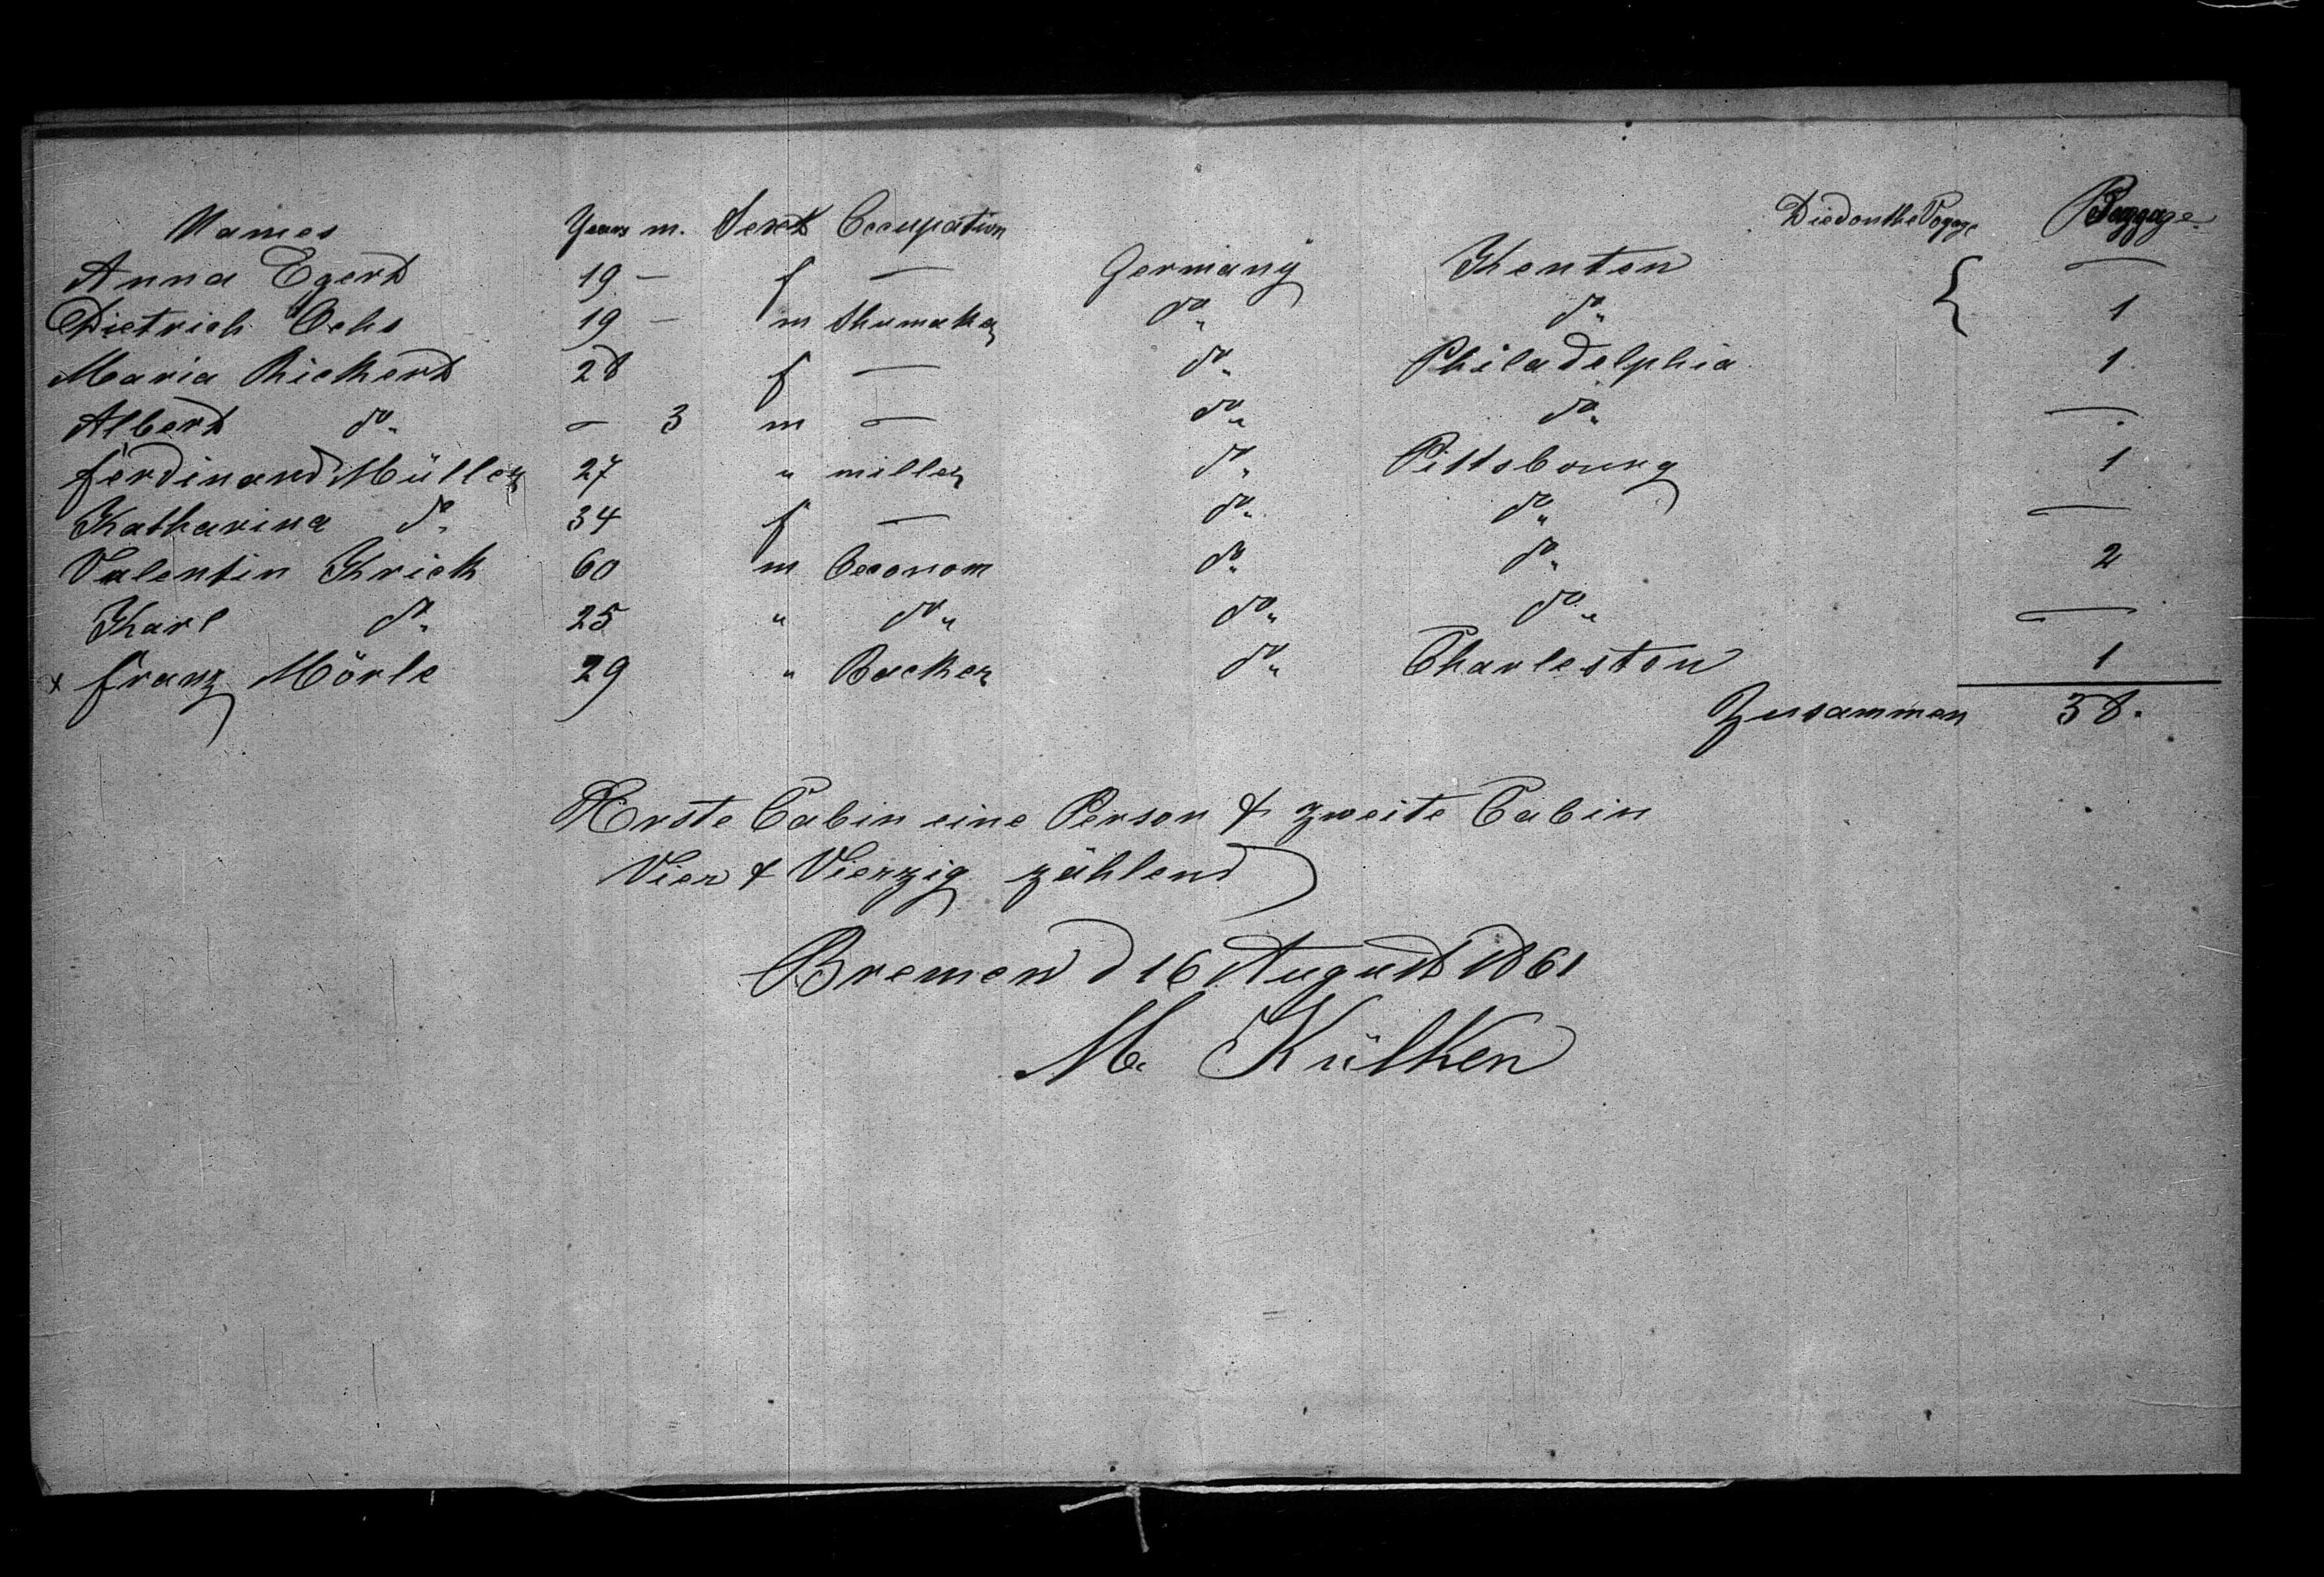 Names Years m. Sexes Occupation Died on the Voyage Baggage
Anna Egert 19 — f — Germany Kenton —
Dietrich Ochs 19 — m Shumaker do " do " 1
Maria Rickert 28 f — do " Philadelphia 1.
Albert do " — 3 m — do " do " —
Ferdinand Müller 27 " miller do " Pittsbourg 1
Katharina do " 34 f — do " do " —
Valentin Krick 60 m Oeconom do " do " 2
Karl do " 25 " do " do " do " —
x Franz Mörle 29 " Backer do " Charleston 1
Zusammen 38.
Erste Cabin eine Person & zweite Cabin
Vier & Vierzig zählend
Bremen d 16 August 1861
M. Külken